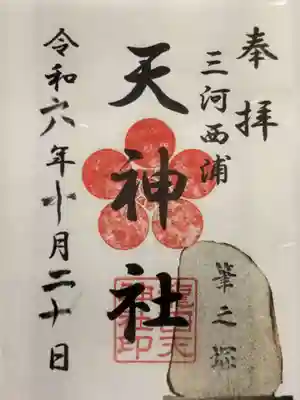 奉拝
三河西浦
天神社
令和六年十月二十日
筆之塚